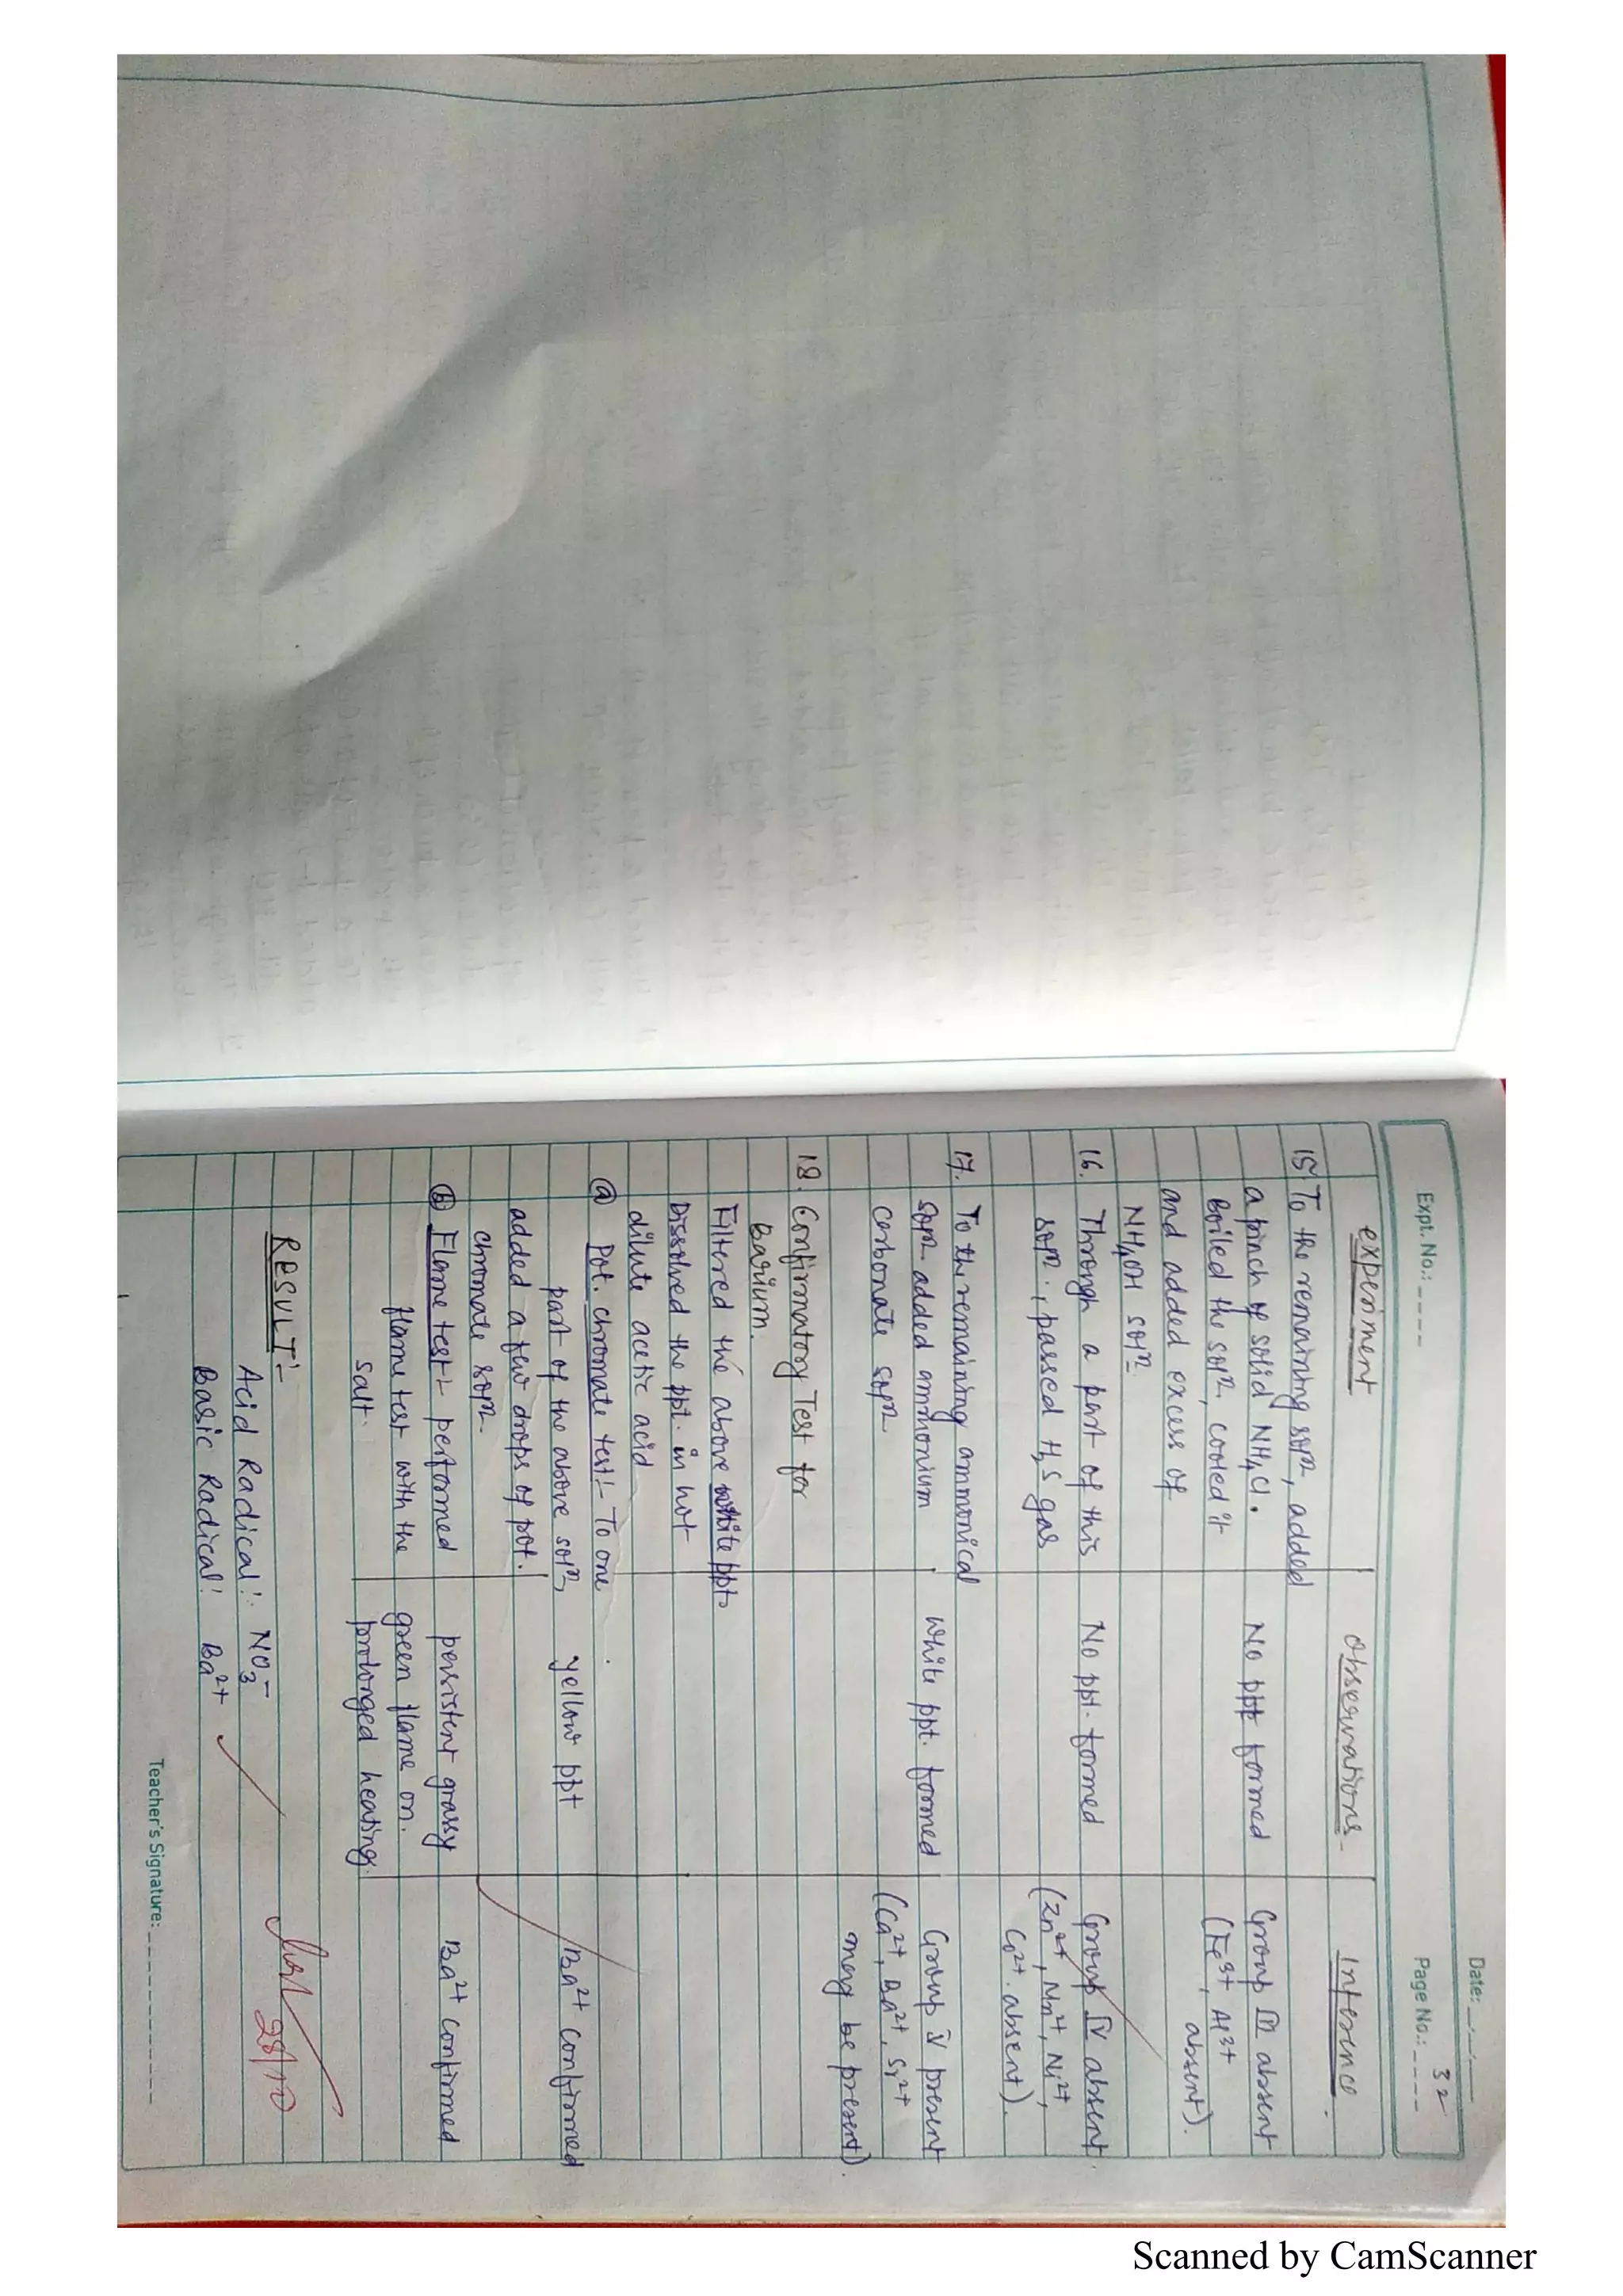 Date: __.__.____
Expt. No.: ____
Page No.: 32
experiment
observations
Inference
15 To the remaining solⁿ, added
a pinch of solid NH₄Cl.
Boiled the solⁿ, cooled it
and added excess of
NH₄OH solⁿ.
No ppt formed
Group III absent
(Fe³⁺, Al³⁺
absent).
16. Through a part of this
solⁿ, passed H₂S gas
No ppt. formed
Group IV absent
(Zn²⁺, Mn²⁺, Ni²⁺,
Co²⁺ absent).
17. To the remaining ammonical
solⁿ added ammonium
carbonate solⁿ
White ppt. formed
Group V present
(Ca²⁺, Ba²⁺, Sr²⁺
may be present).
18. Confirmatory Test for
Barium.
Filtered the above white ppt.
Dissolved the ppt. in hot
dilute acetic acid
ⓐ Pot. chromate test:- To one
part of the above solⁿ,
added a few drops of pot.
chromate solⁿ.
yellow ppt
Ba²⁺ confirmed
ⓑ Flame test:- performed
flame test with the
salt.
persistent grassy
green flame on.
prolonged heating.
Ba²⁺ confirmed
RESULT:-
Acid Radical:- NO₃⁻
Basic Radical: Ba²⁺
28/10
Teacher's Signature: ____________
Scanned by CamScanner